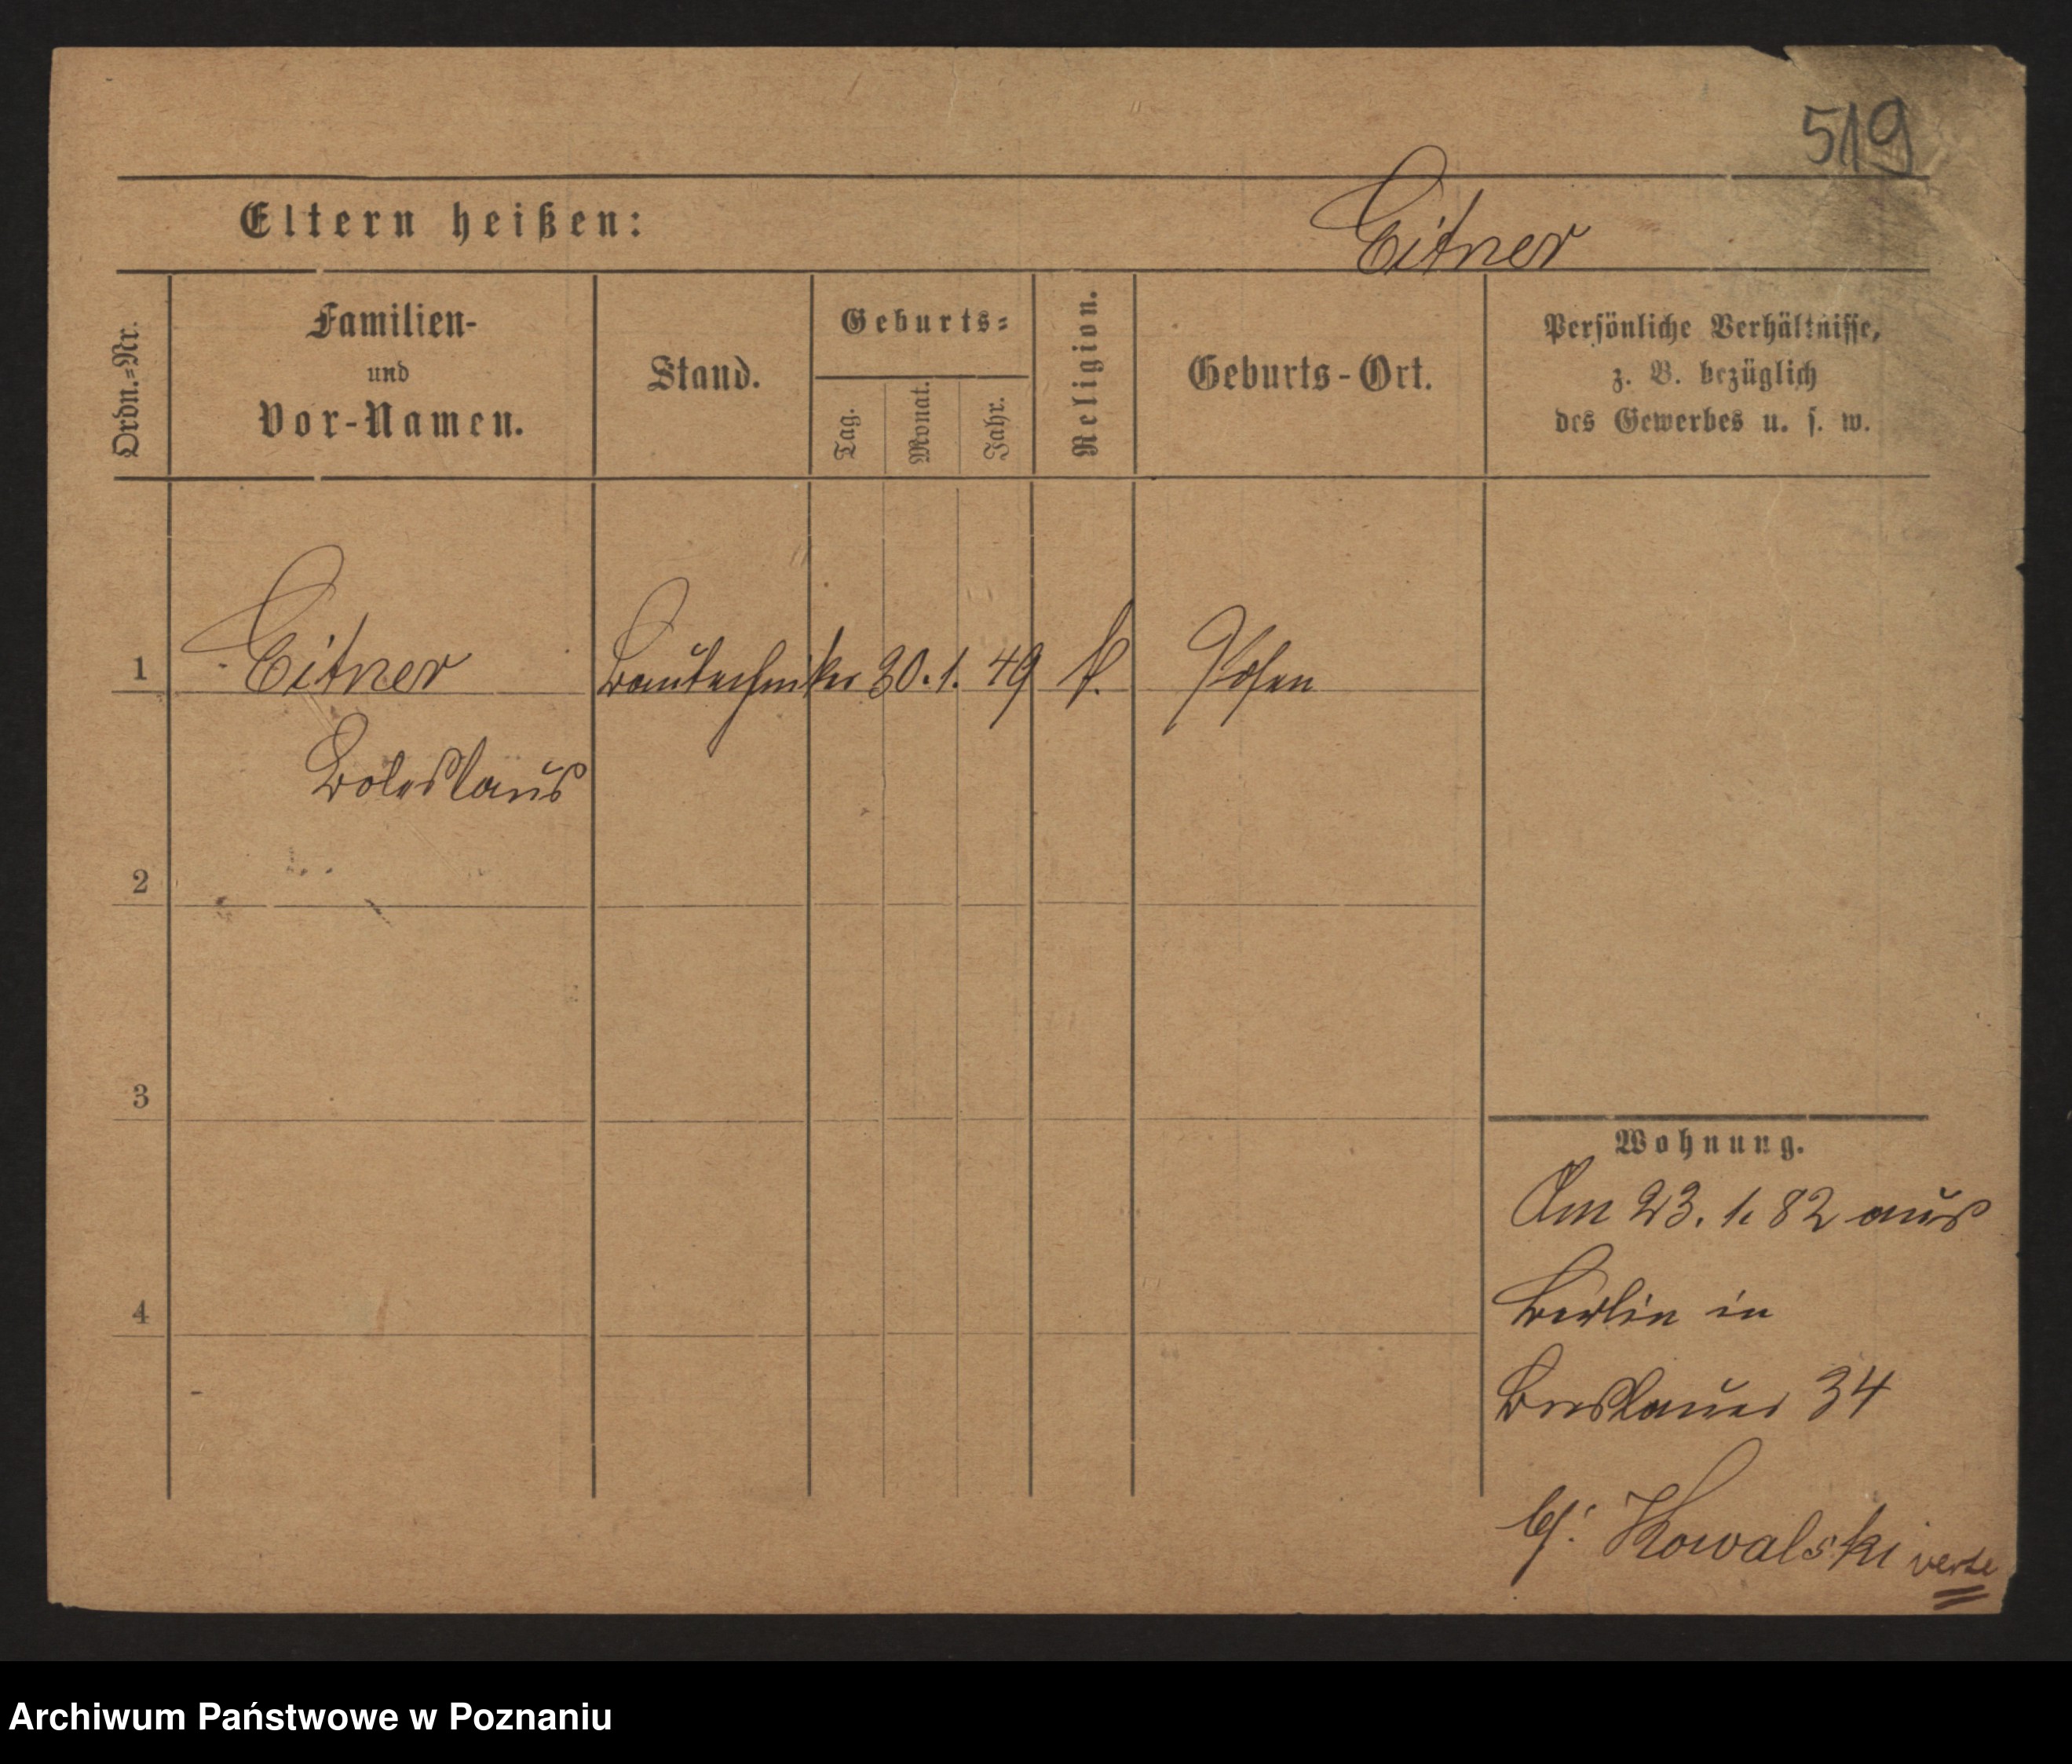 519
Eltern heißen: Eitner
Ordn.=Nr.
Familien-
und
Vor-Namen.
Stand.
Geburts=
Tag.
Monat.
Jahr.
Religion.
Geburts-Ort.
Persönliche Verhältnisse,
z. B. bezüglich
des Gewerbes u. s. w.
1 Eitner Bautechniker 30. 1. 49 k. Posen
Boleslaus
2
3
4
Wohnung.
Am 23. 1. 82 aus
Berlin in
Breslauer 34
bei Kowalski verte
Archiwum Państwowe w Poznaniu